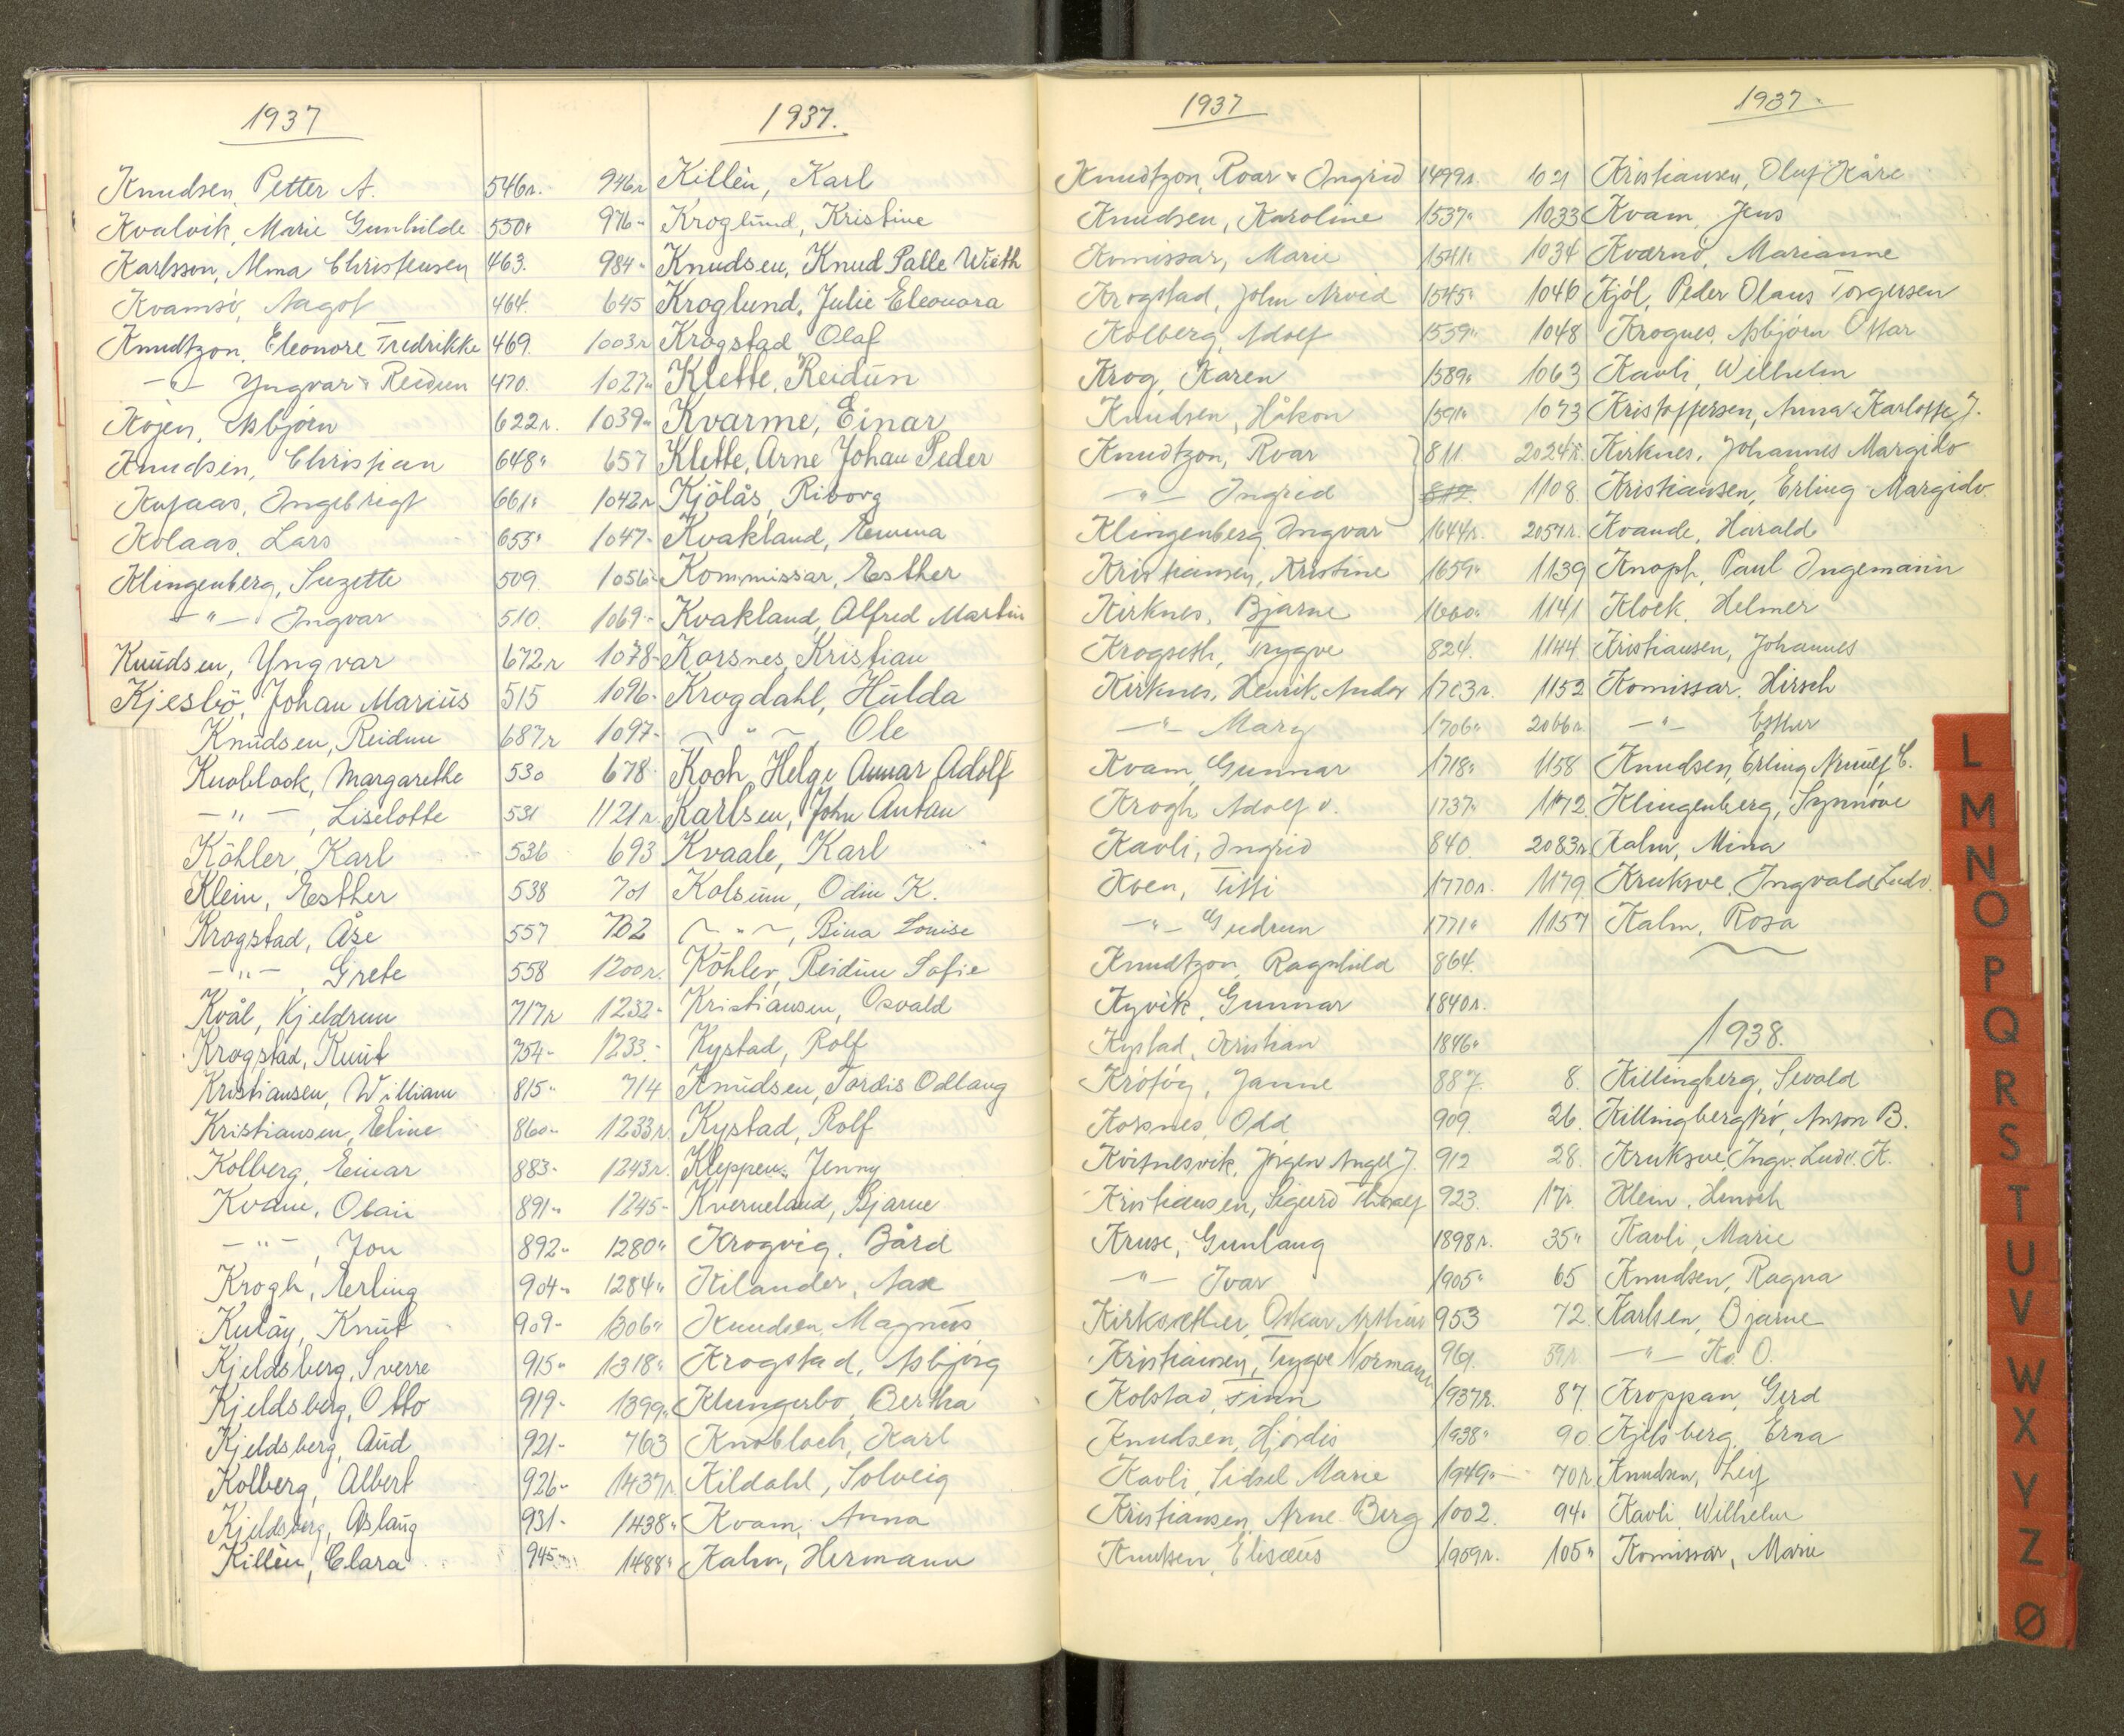 1937
Knudsen, Petter A. 546r.
Kvalvik, Marie Gunhilde 550"
Karlsson, Alma Christensen 463.
Kvamsö, Aagot 464.
Knudtzon, Eleonore Fredrikke 469.
—"— Yngvar & Reidun 470.
Kojen, Asbjörn 622r.
Knudsen, Christian 648"
Ingebrigt 661"
Kolaas, Lars 655"
Klingenberg, Suzette 509
—"— Ingvar 510.
Knudsen, Yngvar 672r
Kjesbö, Johan Marius 515
Knudsen, Reidun 687r
Knoblock, Margarethe 530
—"—, Liselotte 531
Köhler, Karl 536
Klein, Esther 538
Krogstad, Åse 557
—"—, Grete 558
Kvål, Kjeldrun 717r
Krogstad, Knut 754-
Kristiansen, William 815"
Kristiansen, Eline 860-
Kolberg, Einar 883-
Kvam, 891-
—"—, Jon 892-
Krogh, Erling 904-
Knut 909-
Kjeldsberg, Sverre 915-
Kjeldsberg, Otto 919-
Kjeldsberg, Aud 921-
Kolberg, Albert 926-
Kjeldsberg, Aslaug 931-
Killén, Clara 945-
1937.
946r Killén, Karl
976- Kroglund, Kristine
984- Knudsen, Knud Palle Wieth
645 Kroglund, Julie Eleonora
1003r Krogstad Olaf
1027- Klette, Reidun
1039- Kvarme, Einar
657 Klette, Arne Johan Peder
1042r Kjölås, Riborg
1047- Kvakland, Emma
1056- Kommissar, Esther
1069- Kvakland, Alfred Martin
1078- Korsnes, Kristian
1096- Krogdahl, Hulda
1097- —"—, Ole
678 Koch, Helge Annar Adolf
1121r. Karlsen, John Antan
693 Kvaale, Karl
701 Kolsum, Odin K.
702 —"—, Bina Louise
1200r. Köhler, Reidun Sofie
1232- Kristiansen, Osvald
1233.- Kystad, Rolf
714 Knudsen, Tordis Odlaug
1233r. Kystad, Rolf
1243r. Kleppen, Jenny
1245- Kverneland, Bjarne
1280" Krogvig, Bård
1284" Kilander, Aase
1306" Knudsen, Magnus
1318" Krogstad, Asbjörg
1399" Klungerbo, Bertha
763 Knobloch, Karl
1437r Kildahl, Solveig
1438" Kvam, Anna
1488" Kahn, Hermann
1937
Knudtzon, Roar & Ingrid 1499r.
Knudsen, Karoline 1537"
Komissar, Marie 1541"
Krogstad, John Arvid 1545"
Kolberg, Adolf 1559"
Krog, Karen 1589"
Knudsen, Håkon 1591"
Knudtzon, Roar 811
—"— Ingrid 812
Klingenberg, Ingvar 1644r.
Kristiansen, Kristine 1659"
Kirknes, Bjarne 1660"
Krogseth, Trygve 824.
Kirknes, Henrik Andor 1703r.
—"— Mary 1706"
Kvam, Gunnar 1718"
Krogh, Adolf v. 1737"
Kavli, Ingrid 840
Kven, Titti 1770r.
—"— Gudrun 1771"
Knudtzon, Ragnhild 864.
Kyvik, Gunnar 1840r.
Kystad, Kristian 1846"
Krötöy, Janne 887.
Korsnes, Odd 909.
Kvitnesvik, Jörgen Angel J. 912
Kristiansen, Sigurd Thoralf 923.
Kruse, Gunlaug 1898r.
—"— Ivar 1905"
Kirksæther, Oskar Arthur 953
Kristiansen, Trygve Normann 961.
Kolstad, Finn 1937r.
Knudsen, Hjördis 1938"
Kavli, Sidsel Marie 1949"
Kristiansen, Arne Berg 1002.
Knutsen, Elisæus 1959r.
1937.
1021 Kristiansen, Oluf Kåre
1033 Kvam, Jens
1034 Kværnö, Marianne
1046 Kjöl, Peder Olaus Torgersen
1048 Krognes, Asbjörn Ottar
1063 Kavli, Wilhelm
1073 Kristoffersen, Anna Karlotte J.
2024r. Kirknes, Johannes Margido
1108 Kristiansen, Erling Margido
2057r. Kvande, Harald
1139 Knoph, Paul Ingemann
1141 Klock, Helmer
1144 Kristiansen, Johannes
1152 Komissar, Hirsch
2066r. —"— Esther
1158 Knudsen, Erling Arnulf C.
1172 Klingenberg, Synnöve
2083r Kahn, Mina
1179 Kruksve, Ingvald Ludv.
1157 Kahn, Rosa
1938.
8. Killingberg, Sevald
26. Killingbergtrö, Anton B.
28. Kruksve, Ingv. Ludv. K.
17r Klein, Henoch
35" Kavli, Marie
65 Knudsen, Ragna
72 Karlsen, Bjarne
39r —"— Kr. O.
87 Kroppan, Gerd
90 Kjelsberg, Erna
70r. Knudsen, Leif
94" Kavli Wilhelm
105" Komissar, Marie
L
M
N
O
P
Q
R
S
T
U
V
W
X
Y
Z
Ø